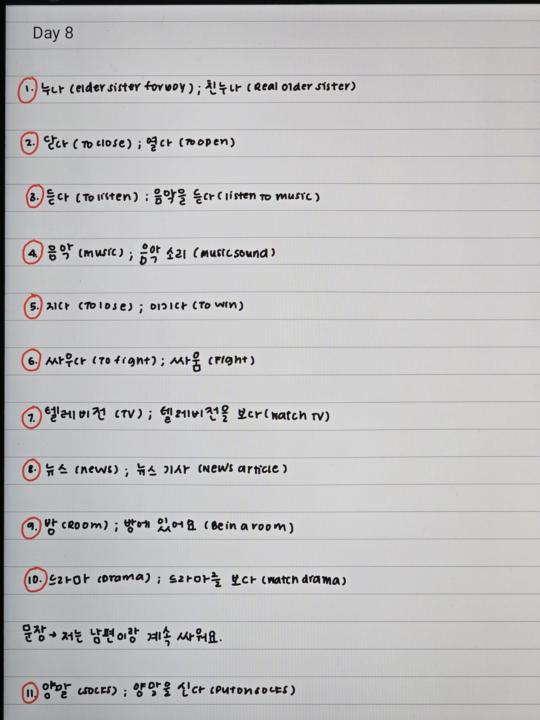 Day 8
1. 누나 (elder sister for boy) ; 친누나 (Real older sister)
2. 닫다 (To close) ; 열다 (To open)
3. 듣다 (To listen) : 음악을 듣다 (listen to music)
4. 음악 (music) ; 음악 소리 (music sound)
5. 지다 (To lose) ; 이기다 (To win)
6. 싸우다 (To fight) ; 싸움 (Fight)
7. 텔레비전 (TV) ; 텔레비전을 보다 (watch TV)
8. 뉴스 (news) ; 뉴스 기사 (News article)
9. 방 (Room) ; 방에 있어요 (Be in a room)
10. 드라마 (Drama) ; 드라마를 보다 (watch drama)
문장 → 저는 남편이랑 계속 싸워요.
11. 양말 (socks) ; 양말을 신다 (put on socks)